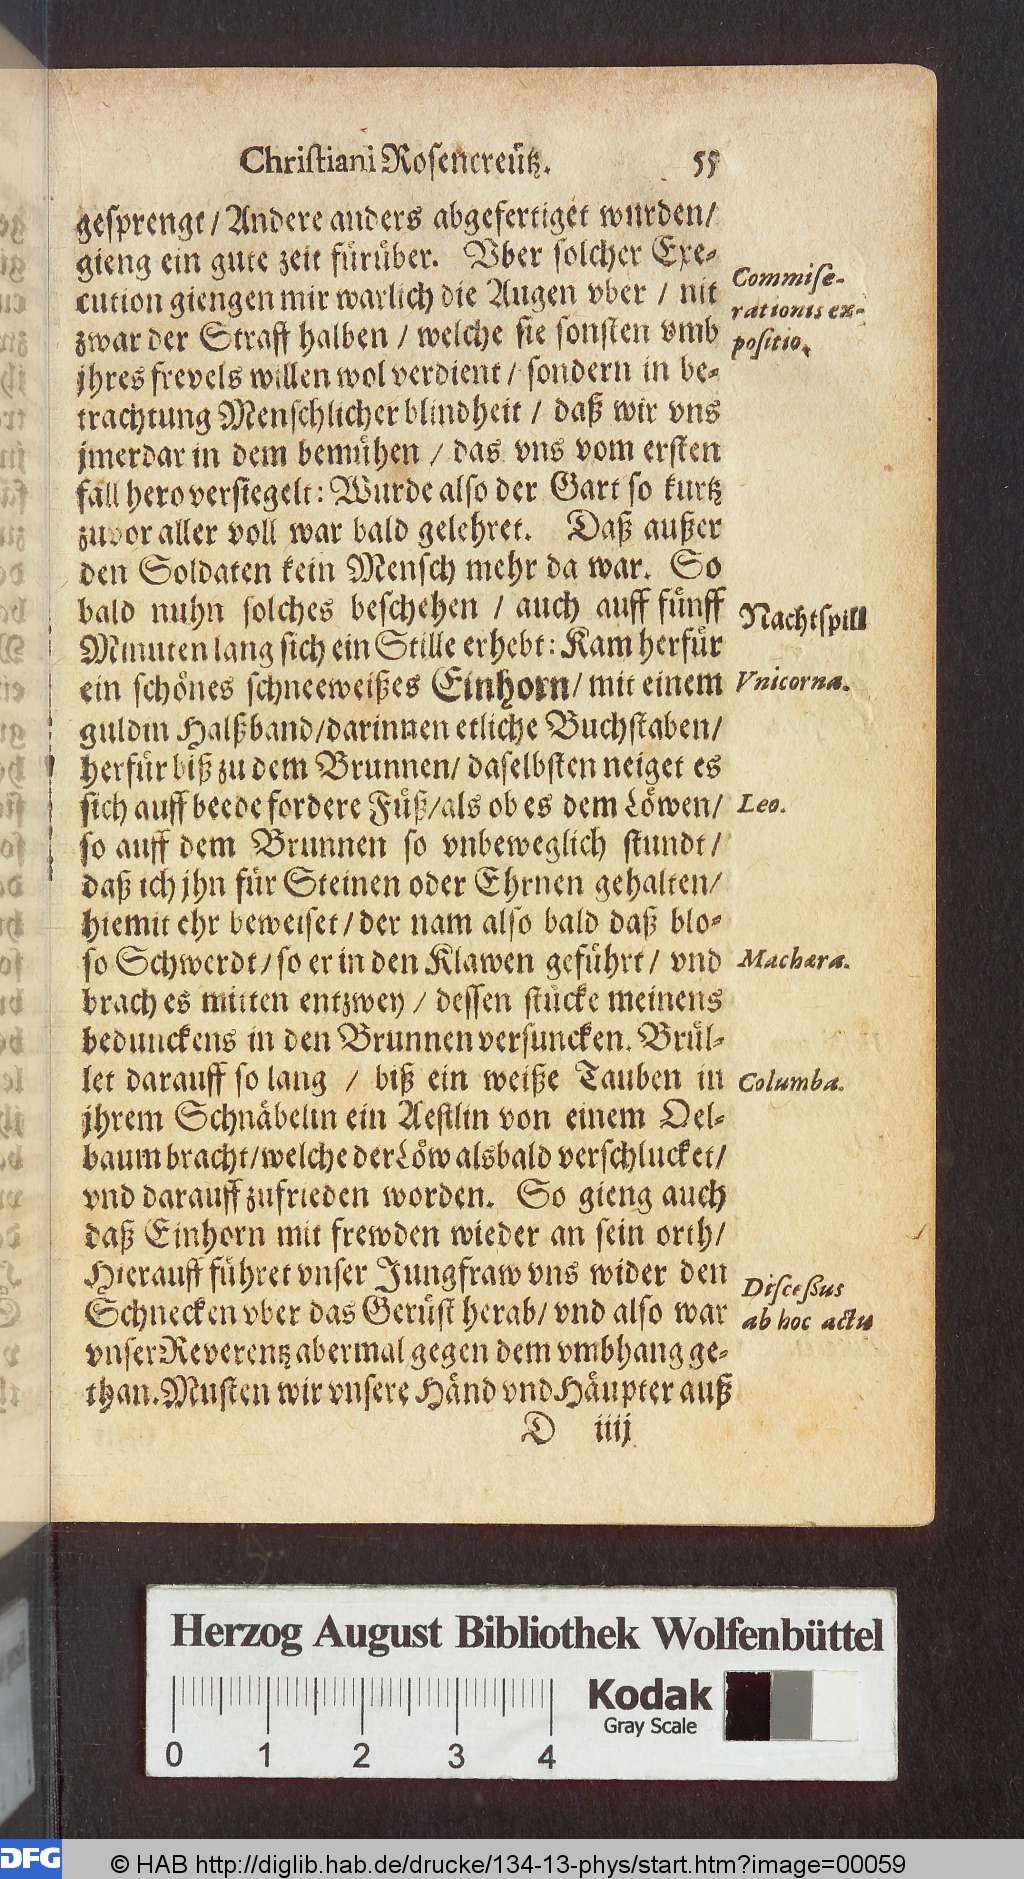 Christiani Rosencreütz. 55
gesprengt / Andere anders abgefertiget wurden /
gieng ein gute zeit fürüber. Vber solcher Exe-
cution giengen mir warlich die Augen vber / nit
zwar der Straff halben / welche sie sonsten vmb
jhres frevels willen wol verdient / sondern in be-
trachtung Menschlicher blindheit / daß wir vns
jmerdar in dem bemühen / das vns vom ersten
fall hero versiegelt: Wurde also der Gart so kurtz
zuvor aller voll war bald gelehret. Daß außer
den Soldaten kein Mensch mehr da war. So
bald nuhn solches beschehen / auch auff fünff
Minuten lang sich ein Stille erhebt: Kam herfür
ein schönes schneeweißes Einhorn / mit einem
guldin Halßband / darinnen etliche Buchstaben /
herfür biß zu dem Brunnen / daselbsten neiget es
sich auff beede fordere Füß / als ob es dem Löwen /
so auff dem Brunnen so vnbeweglich stundt /
daß ich jhn für Steinen oder Ehrnen gehalten /
hiemit ehr beweiset / der nam also bald daß blo-
so Schwerdt / so er in den Klawen geführt / vnd
brach es mitten entzwey / dessen stücke meinens
bedunckens in den Brunnen versuncken. Brül-
let darauff so lang / biß ein weiße Tauben in
jhrem Schnäbelin ein Aestlin von einem Oel-
baum bracht / welche der Löw alsbald verschlucket /
vnd darauff zufrieden worden. So gieng auch
daß Einhorn mit frewden wieder an sein orth /
Hierauff führet vnser Jungfraw vns wider den
Schnecken vber das Gerüst herab / vnd also war
vnser Reverentz abermal gegen dem vmbhang ge-
than. Musten wir vnsere Händ vnd Häupter auß
D iiij
Commise-
rationis ex-
positio.
Nachtspill
Vnicorna.
Leo.
Machæra.
Columba.
Discessus
ab hoc actu
Herzog August Bibliothek Wolfenbüttel
Kodak
Gray Scale
0 1 2 3 4
DFG
© HAB http://diglib.hab.de/drucke/134-13-phys/start.htm?image=00059